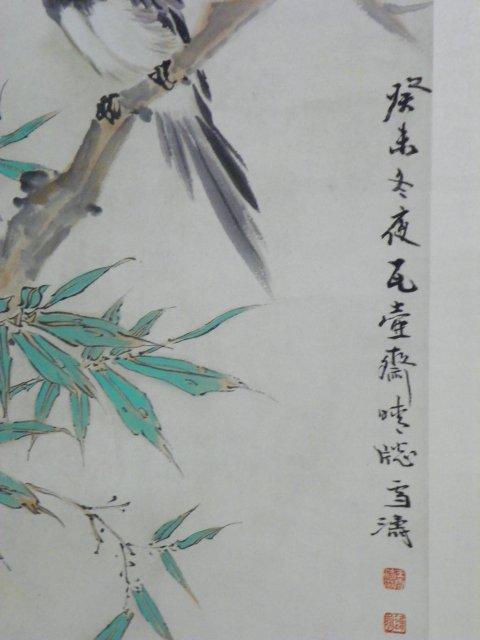 癸未冬夜瓦壺齋晴牕雪濤